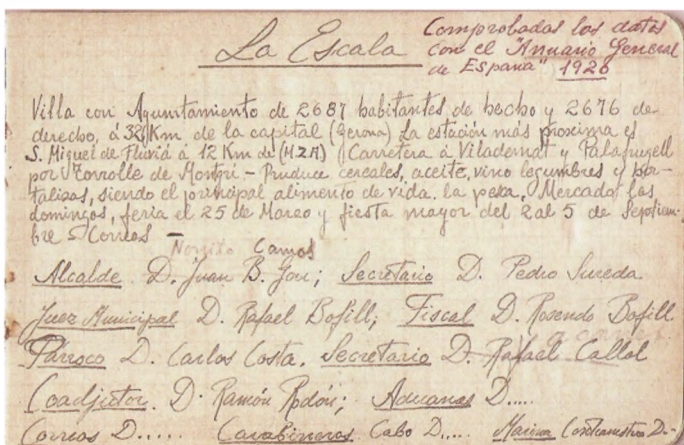 La Escala
Comprobados los datos
con el "Anuario General
de España" 1926
Villa con Ayuntamiento de 2687 habitantes de hecho y 2676 de
derecho, á 32 Km de la capital (Gerona) La estación más proxima es
S. Miguel de Fluviá á 12 Km de (MZA) Carretera á Vilademat y Palafrugell
por Torrolle de Montgri - Produce cereales, aceite, vino legumbres y hor-
talizas, siendo el principal alimento de vida la pesa. Mercado los
domingos, feria el 25 de Marzo y fiesta mayor del 2 al 5 de Septiem-
bre = Correos
Camos
Alcalde D. Juan B. Gou; Secretario D. Pedro Sureda
Juez Municipal D. Rafael Bofill; Fiscal D. Rosendo Bofill
Párroco D. Carlos Costa. Secretario D. Rafael Callol
Coadjutor D. Ramón Rodón; Aduanas D.....
Correos D..... Carabineros Cabo D.... Marina Contramestre D..